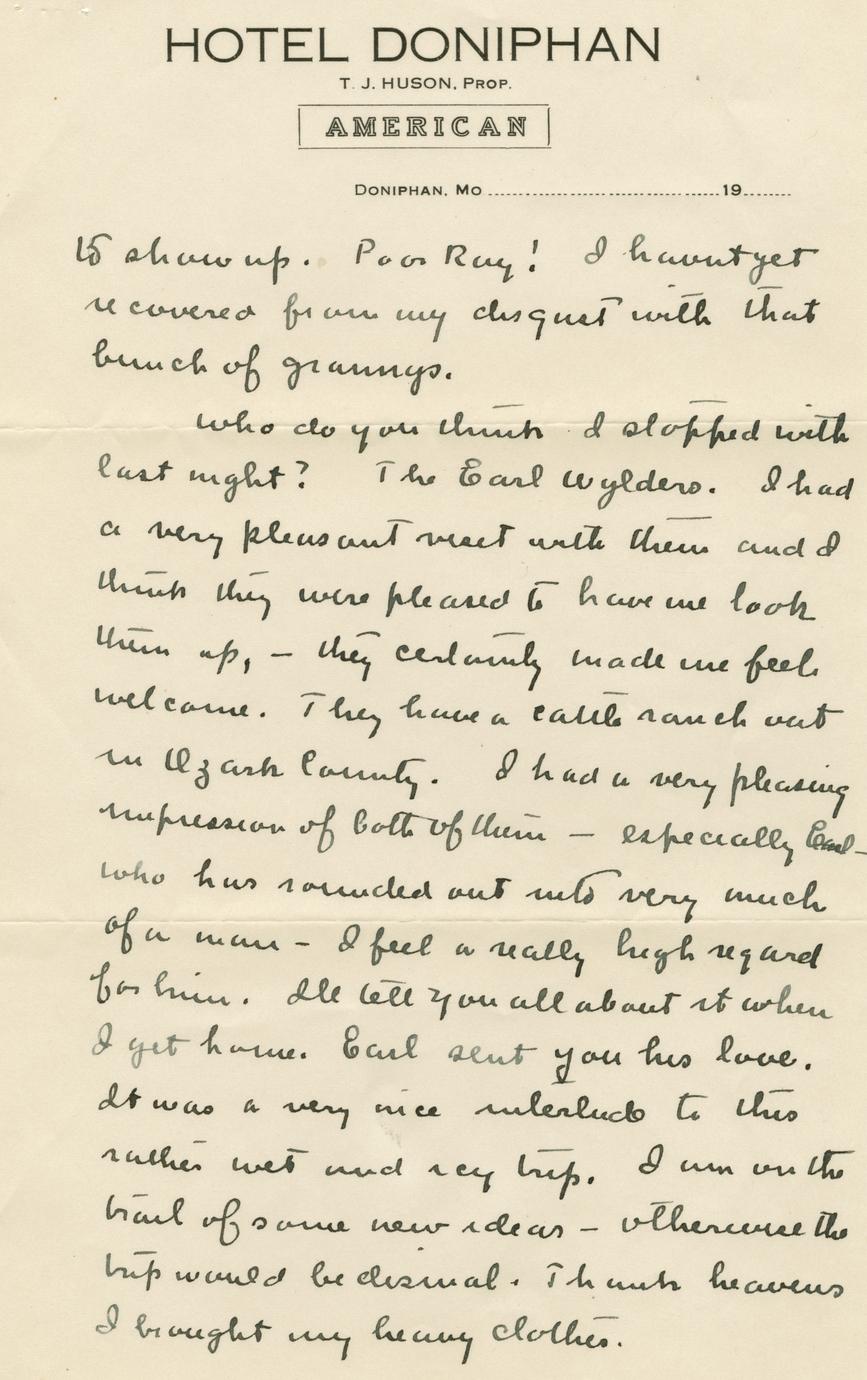 HOTEL DONIPHAN
T. J. HUSON, PROP.
AMERICAN
DONIPHAN, MO ........................................ 19........
to show up. Poor Ray! I havent yet
recovered from my disgust with that
bunch of grannys.
Who do you think I stopped with
last night? The Earl Wylders. I had
a very pleasant visit with them and I
think they were pleased to have me look
them up, – they certainly made me feel
welcome. They have a cattle ranch out
in Ozark County. I had a very pleasing
impression of both of them – especially Earl –
who has rounded out into very much
of a man – I feel a really high regard
for him. Ill tell you all about it when
I get home. Earl sent you his love.
It was a very nice interlude to this
rather wet and icy trip. I am on the
trail of some new ideas – otherwise the
trip would be dismal. Thank heavens
I brought my heavy clothes.